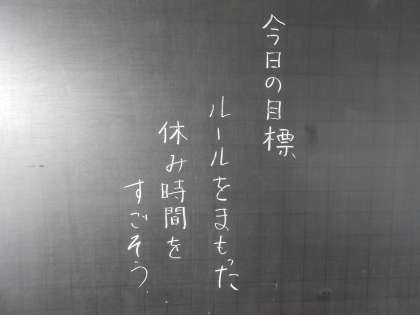 今日の目標
ルールをまもった
休み時間を
すごそう